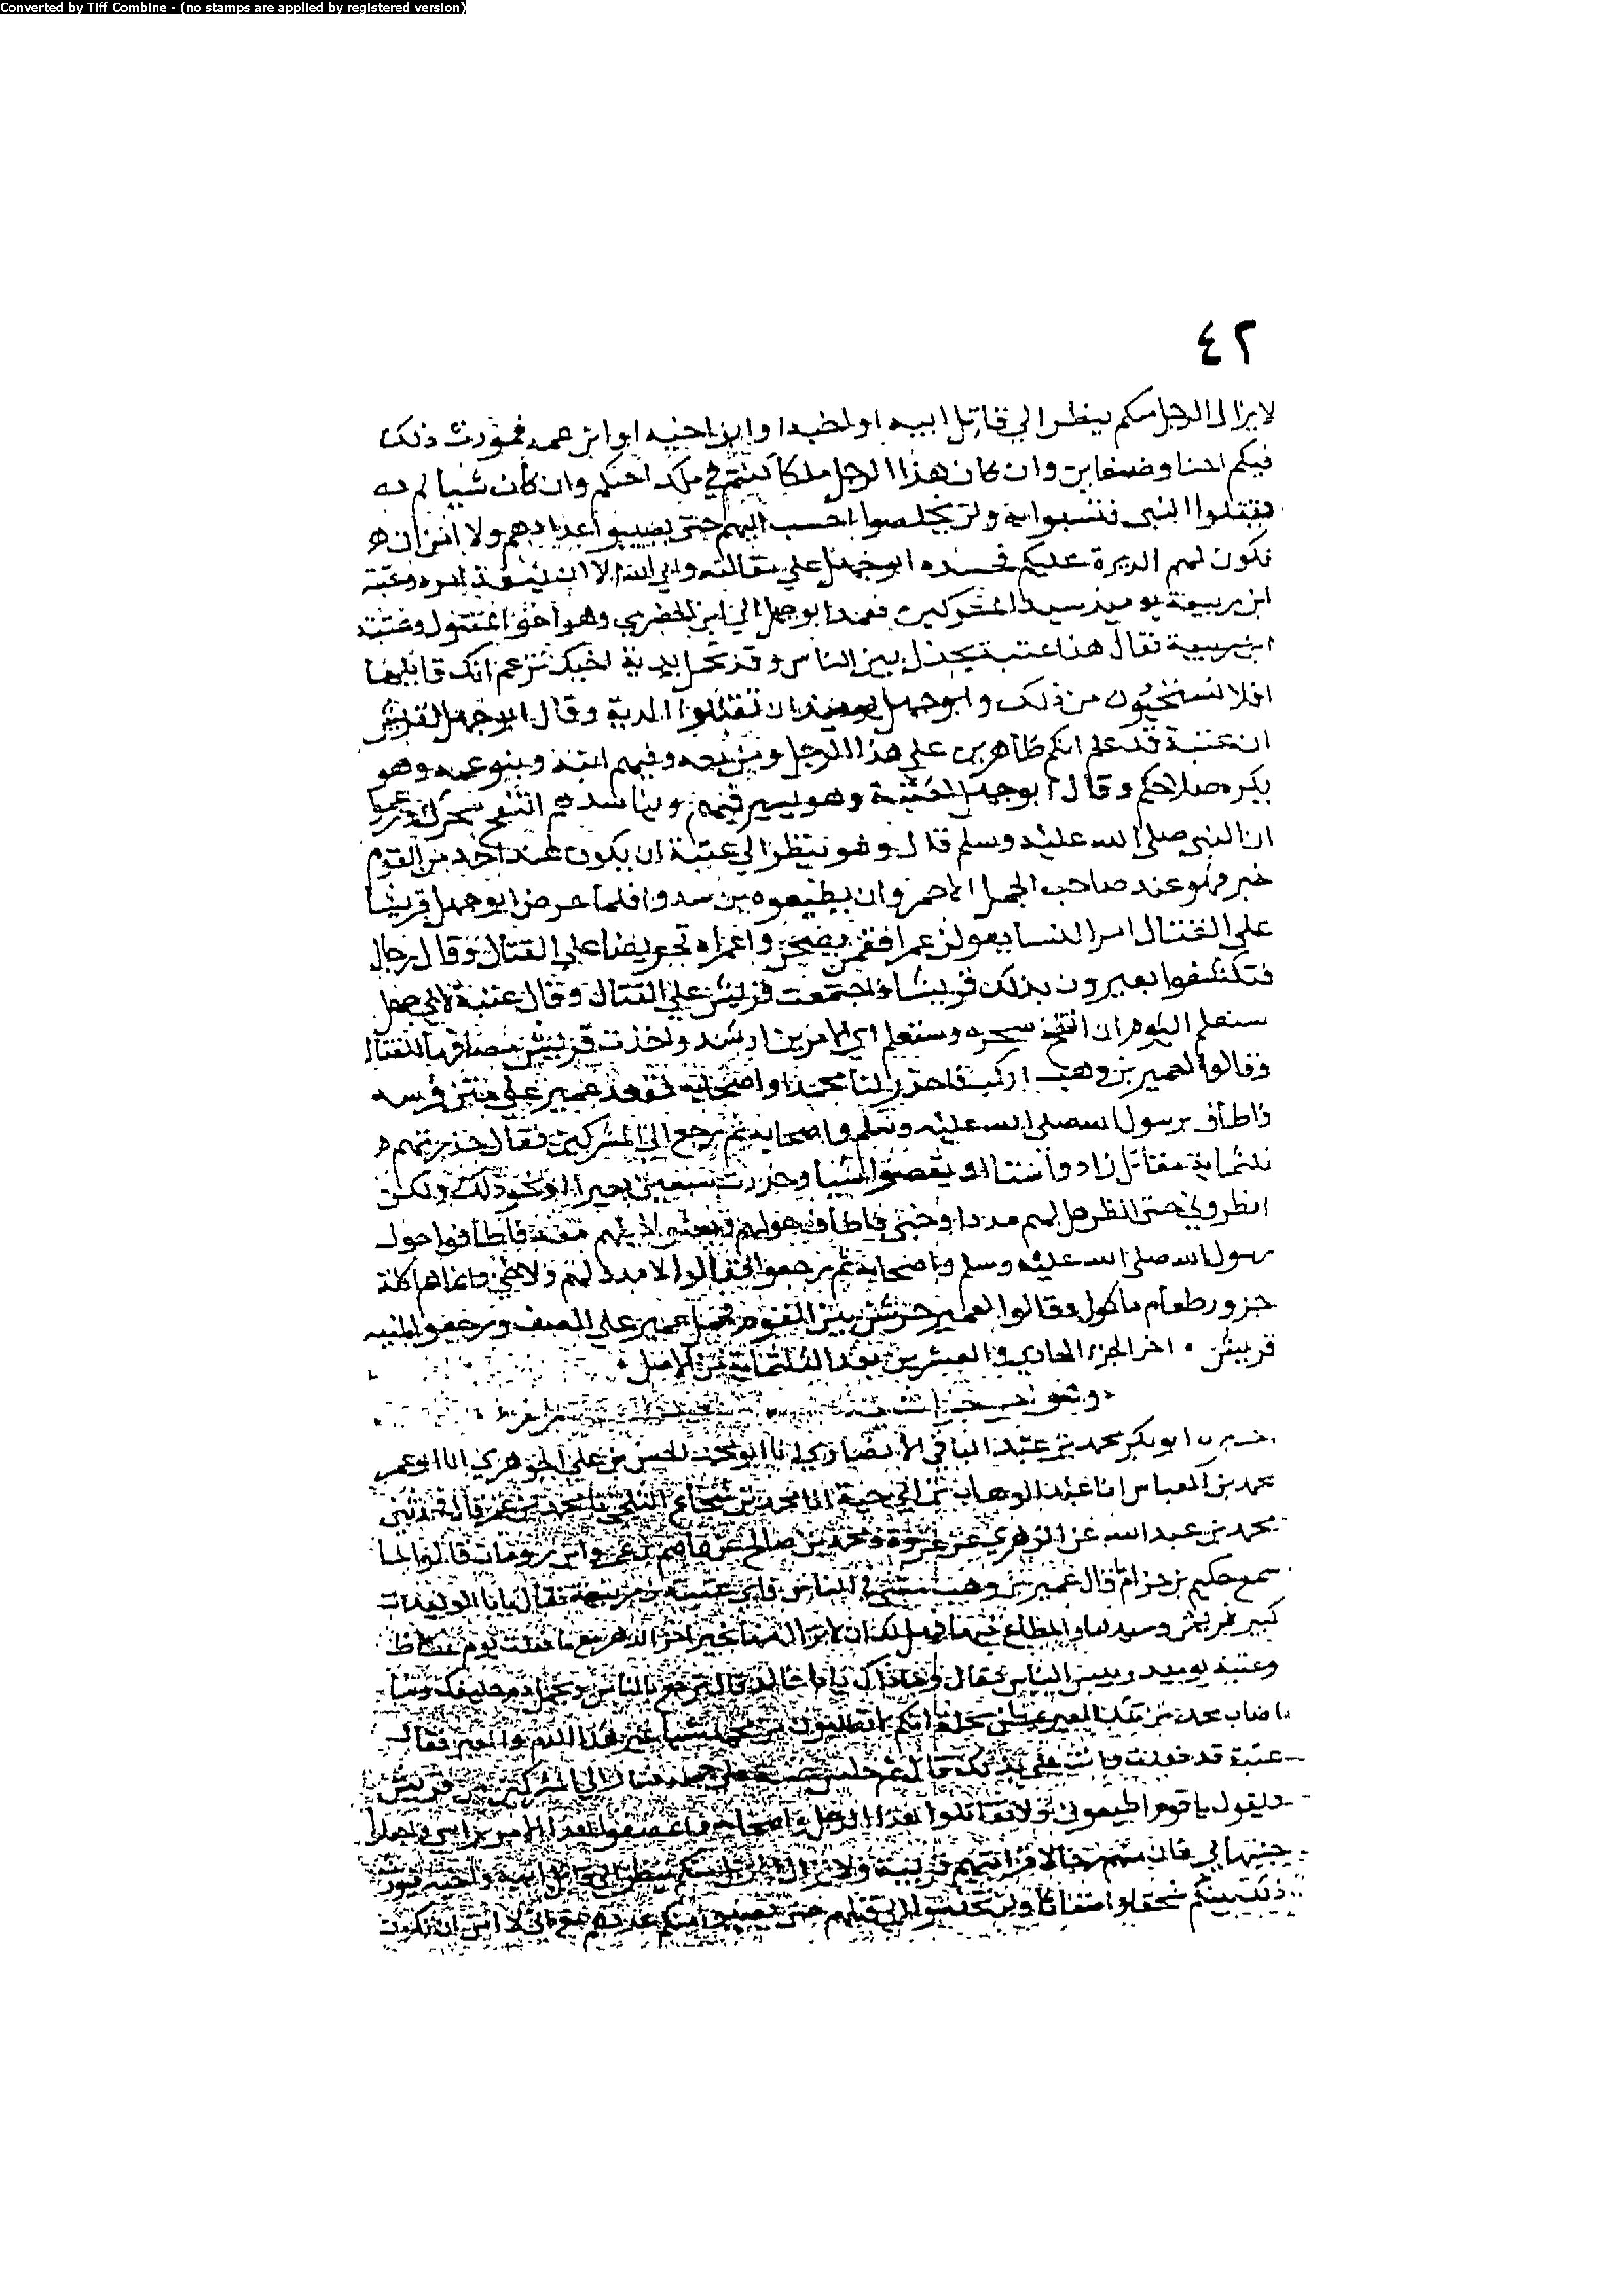 Converted by Tiff Combine - (no stamps are applied by registered version)
٤٢
لا يزال الرجل منكم ينظر الي قاتل ابيه او اخيه او ابن اخيه او ابن عمه فيورث ذلك
فيكم احنا وضغاين وان كان هذا الرجل ملكا كنتم في ملك اخيكم وان كان نبيا لم
تقتلوا النبي فتسبوا به ولن تخلصوا احسب اليهم حتى يصيبوا اعدادهم ولا امن ان
تكون لهم الدبرة عليكم فحسده ابو جهل علي مقالته وابي الله الا ان ينفذ امره وعتبة
ابن ربيعة يوميذ سيد المشركين فعمد ابو جهل الي ابن الحضرمي وهو اخو المقتول وعتبة
ابن ربيعة فقال هذا عتبة يخذل بين الناس وقد تحمل بدية اخيك تزعم انك قابلها
افلا تستحيون من ذلك وابو جهل ان تقبلوا الدية وقال ابو جهل لقريش
ان عتبة قد علم انكم ظاهرين علي هذا الرجل ومن معه وفيهم ابنه وبنو عمه وهو
يكره صلاحكم وقال ابو جهل لعتبة وهو يسير فيهم ويناشدهم انتفخ سحرك
ان النبي صلى الله عليه وسلم قال وهو ينظر الي عتبة ان يكون عند احد من القوم
خير فهو عند صاحب الجمل الاحمر وان يطيعوه يرشدوا فلما حرض ابو جهل قريشا
على القتال امر النسا يعولن عمرا فقمن يصحن واعمراه تحريضا علي القتال وقال رجال
فتكشفوا يعيرون بذلك قريشا فاجتمعت قريش علي القتال وقال عتبة لابي جهل
ستعلم اليوم من انتفخ سحره وستعلم اي الامرين ارشد واخذت قريش مصافها للقتال
وقالوا لعمير بن وهب اركب فاحزر لنا محمدا واصحابه فقعد عمير علي متن فرسه
فاطاف برسول الله صلى الله عليه وسلم واصحابه ثم رجع الى المشركين فقال حزرتهم
ثلثماية مقاتل زادوا شيا او نقصوا شيا وحزرت سبعين بعيرا او نحو ذلك ولكن
انظروني حتى انظر هل لهم مدد او خبي فاطاف حولهم وبعثوا خيلهم معه فاطافوا حول
رسول الله صلى الله عليه وسلم واصحابه ثم رجعوا فقالوا لا مدد لهم ولا خبي وانما هم اكلة
جزور طعام ماكول وقالوا لعمير حرش بين القوم فحمل عمير علي الصف ورجعوا
قريش ۰ اخر الجزء الحادي والعشرين بعد الثلثماية من الاصل ۰
ابو بكر محمد بن عبد الباقي الانصاري انا ابو محمد الحسن بن علي الجوهري انا ابو عمر
محمد بن العباس انا عبد الوهاب بن ابي حية انا محمد بن شجاع الثلجي نا محمد بن عمر قال فحدثني
محمد بن عبد الله عن الزهري عن عروة ومحمد بن صالح عن عاصم بن عمر وابن رومان قالوا لما
سمع حكيم بن حزام قال عمير بن وهب مشى في الناس فاتى عتبة بن ربيعة فقال يابا الوليد انت
كبير قريش وسيدها والمطاع فيها فهل لك ان لا تزال منها بخير اخر الدهر مع ما فعلت يوم عكاظ
وعتبة يوميد رييس الناس فقال وما ذاك يابا خالد قال ترجع بالناس وتحمل دم حليفك وما
اصاب محمد من تلك العير ببطن نخلة انكم لا تطلبون من محمد شيا غير هذا الدم والعير فقال
عتبة قد فعلت وانت علي بذلك قال ثم جلس عتبة على جمله فسار الي المشركين من قريش
يقول يا قوم اطيعوني ولا تقاتلوا هذا الرجل واصحابه واعصبوا هذا الامر براسي واجعلوا
جبنها بي فان منهم رجالا قرابتهم قريبة ولا يزال الرجل منكم ينظر الى قاتل ابيه واخيه فيورث
ذلك بينكم شحنا واضغانا ولن تخلصوا الى قتلهم حتى يصيبوا منكم عددهم مع اني لا امن ان تكون